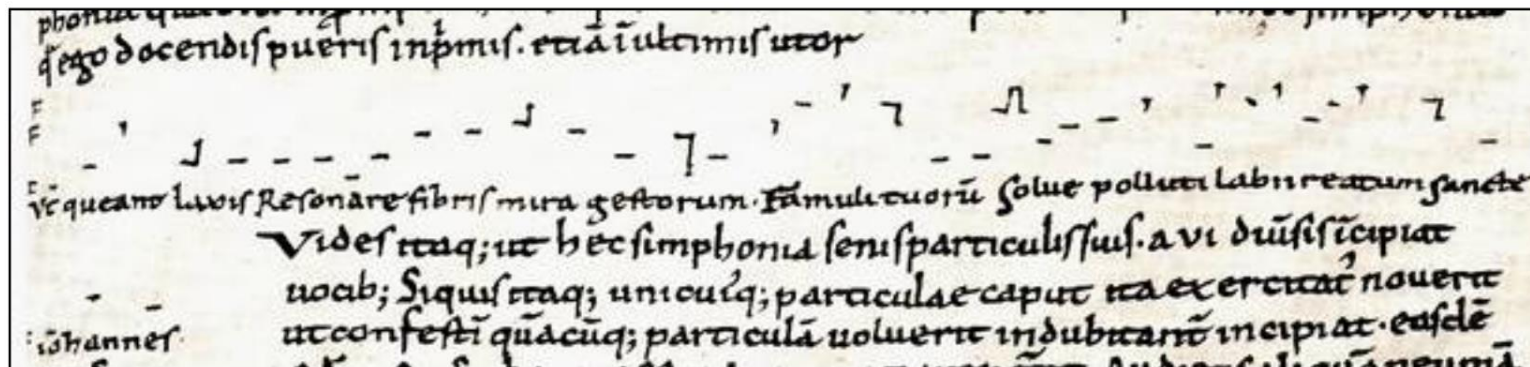 q̄ ego docendis pueris inp̄mis. etiā īultimis utor
F
F
Vt̄ queant laxis Resonāre fibris mira gestorum. Fāmuli tuorū Solue polluti labii reatum sancte
Vides itaq; ut hęc simphonia senis particulis suis. a vi diuīsis īcipiat
uocib; Siquis itaq; unicui'q; particulae caput ita exercitat' noverit
iōhannēs. ut confestī quācūq; particulā uoluerit indubitant̄ incipiat. easdē